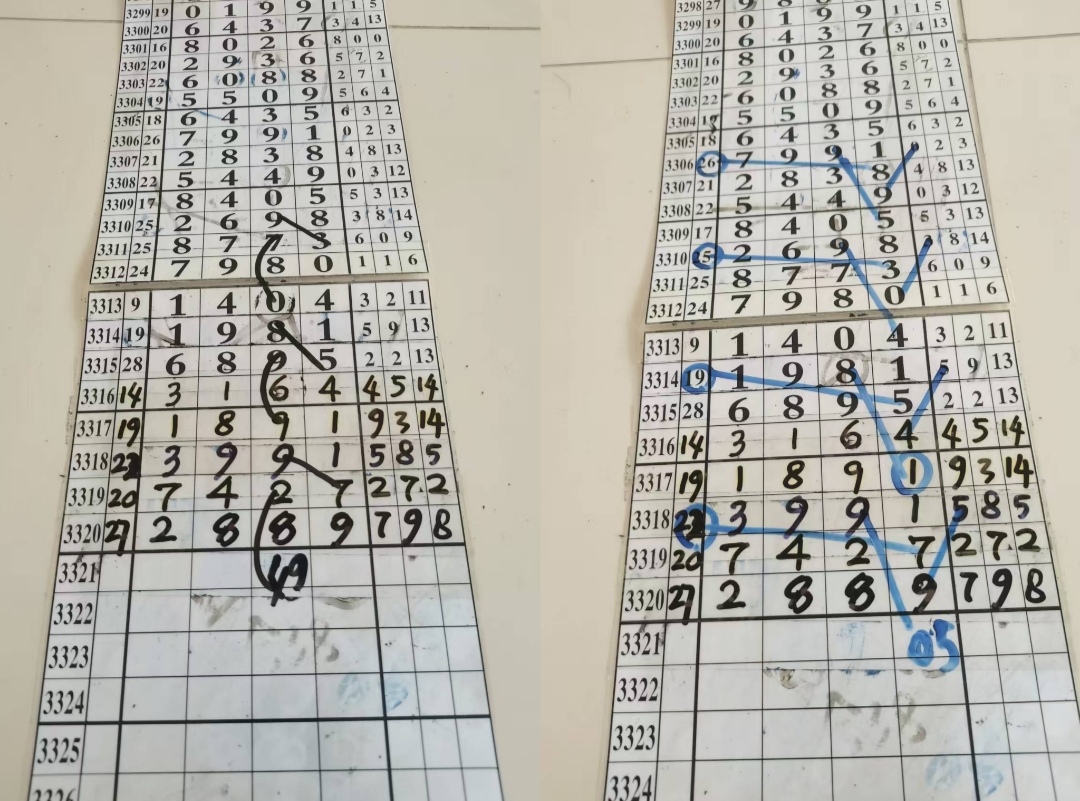 3299 19 0 1 9 9 1 1 5
3300 20 6 4 3 7 3 4 13
3301 16 8 0 2 6 8 0 0
3302 20 2 9 3 6 5 7 2
3303 22 6 0 8 8 2 7 1
3304 19 5 5 0 9 5 6 4
3305 18 6 4 3 5 6 3 2
3306 26 7 9 9 1 0 2 3
3307 21 2 8 3 8 4 8 13
3308 22 5 4 4 9 0 3 12
3309 17 8 4 0 5 5 3 13
3310 25 2 6 9 8 3 8 14
3311 25 8 7 7 3 6 0 9
3312 24 7 9 8 0 1 1 6
3313 9 1 4 0 4 3 2 11
3314 19 1 9 8 1 5 9 13
3315 28 6 8 9 5 2 2 13
3316 14 3 1 6 4 4 5 14
3317 19 1 8 9 1 9 3 14
3318 22 3 9 9 1 5 8 5
3319 20 7 4 2 7 2 7 2
3320 27 2 8 8 9 7 9 8
3321 49
3322
3323
3324
3325
3326
3298 27 9 8
3299 19 0 1 9 9 1 1 5
3300 20 6 4 3 7 3 4 13
3301 16 8 0 2 6 8 0 0
3302 20 2 9 3 6 5 7 2
3303 22 6 0 8 8 2 7 1
3304 5 5 0 9 5 6 4
3305 18 6 4 3 5 6 3 2
3306 26 7 9 9 1 0 2 3
3307 21 2 8 3 8 4 8 13
3308 22 5 4 4 9 0 3 12
3309 17 8 4 0 5 5 3 13
3310 25 2 6 9 8 3 8 14
3311 25 8 7 7 3 6 0 9
3312 24 7 9 8 0 1 1 6
3313 9 1 4 0 4 3 2 11
3314 19 1 9 8 1 5 9 13
3315 28 6 8 9 5 2 2 13
3316 14 3 1 6 4 4 5 14
3317 19 1 8 9 1 9 3 14
3318 22 3 9 9 1 5 8 5
3319 20 7 4 2 7 2 7 2
3320 27 2 8 8 9 7 9 8
3321 05
3322
3323
3324